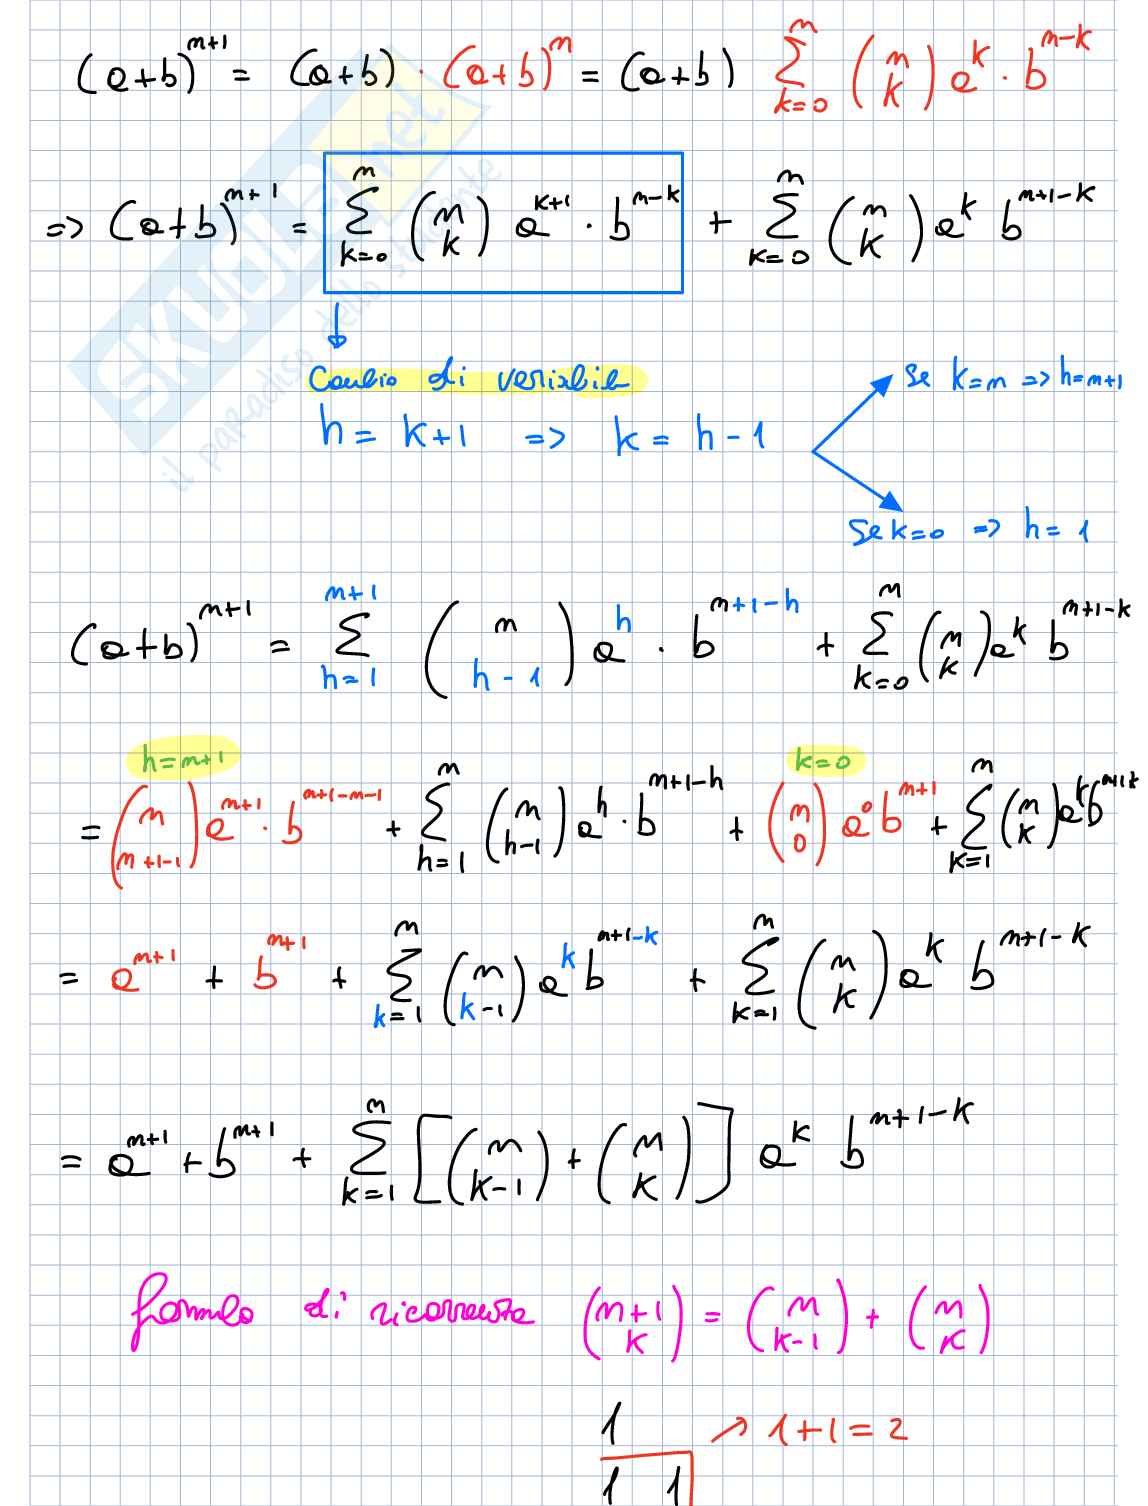 (a+b)^{n+1} = (a+b) · (a+b)^n = (a+b) \sum_{k=0}^{n} \binom{n}{k} a^k · b^{n-k}
=> (a+b)^{n+1} = \sum_{k=0}^{n} \binom{n}{k} a^{k+1} · b^{n-k} + \sum_{k=0}^{n} \binom{n}{k} a^k b^{n+1-k}
SKUOLA.net
il paradiso dello studente
Cambio di variabile
Se k=n => h=n+1
h = k+1 => k = h-1
Se k=0 => h=1
(a+b)^{n+1} = \sum_{h=1}^{n+1} \binom{n}{h-1} a^h · b^{n+1-h} + \sum_{k=0}^{n} \binom{n}{k} a^k b^{n+1-k}
h=n+1 k=0
= \binom{n}{n+1-1} a^{n+1} · b^{n+1-n-1} + \sum_{h=1}^{n} \binom{n}{h-1} a^h · b^{n+1-h} + \binom{n}{0} a^0 b^{n+1} + \sum_{k=1}^{n} \binom{n}{k} a^k b^{n+1-k}
= a^{n+1} + b^{n+1} + \sum_{k=1}^{n} \binom{n}{k-1} a^k b^{n+1-k} + \sum_{k=1}^{n} \binom{n}{k} a^k b^{n+1-k}
= a^{n+1} + b^{n+1} + \sum_{k=1}^{n} [\binom{n}{k-1} + \binom{n}{k}] a^k b^{n+1-k}
formula di ricorrenza \binom{n+1}{k} = \binom{n}{k-1} + \binom{n}{k}
1 ↗ 1+1=2
1 1